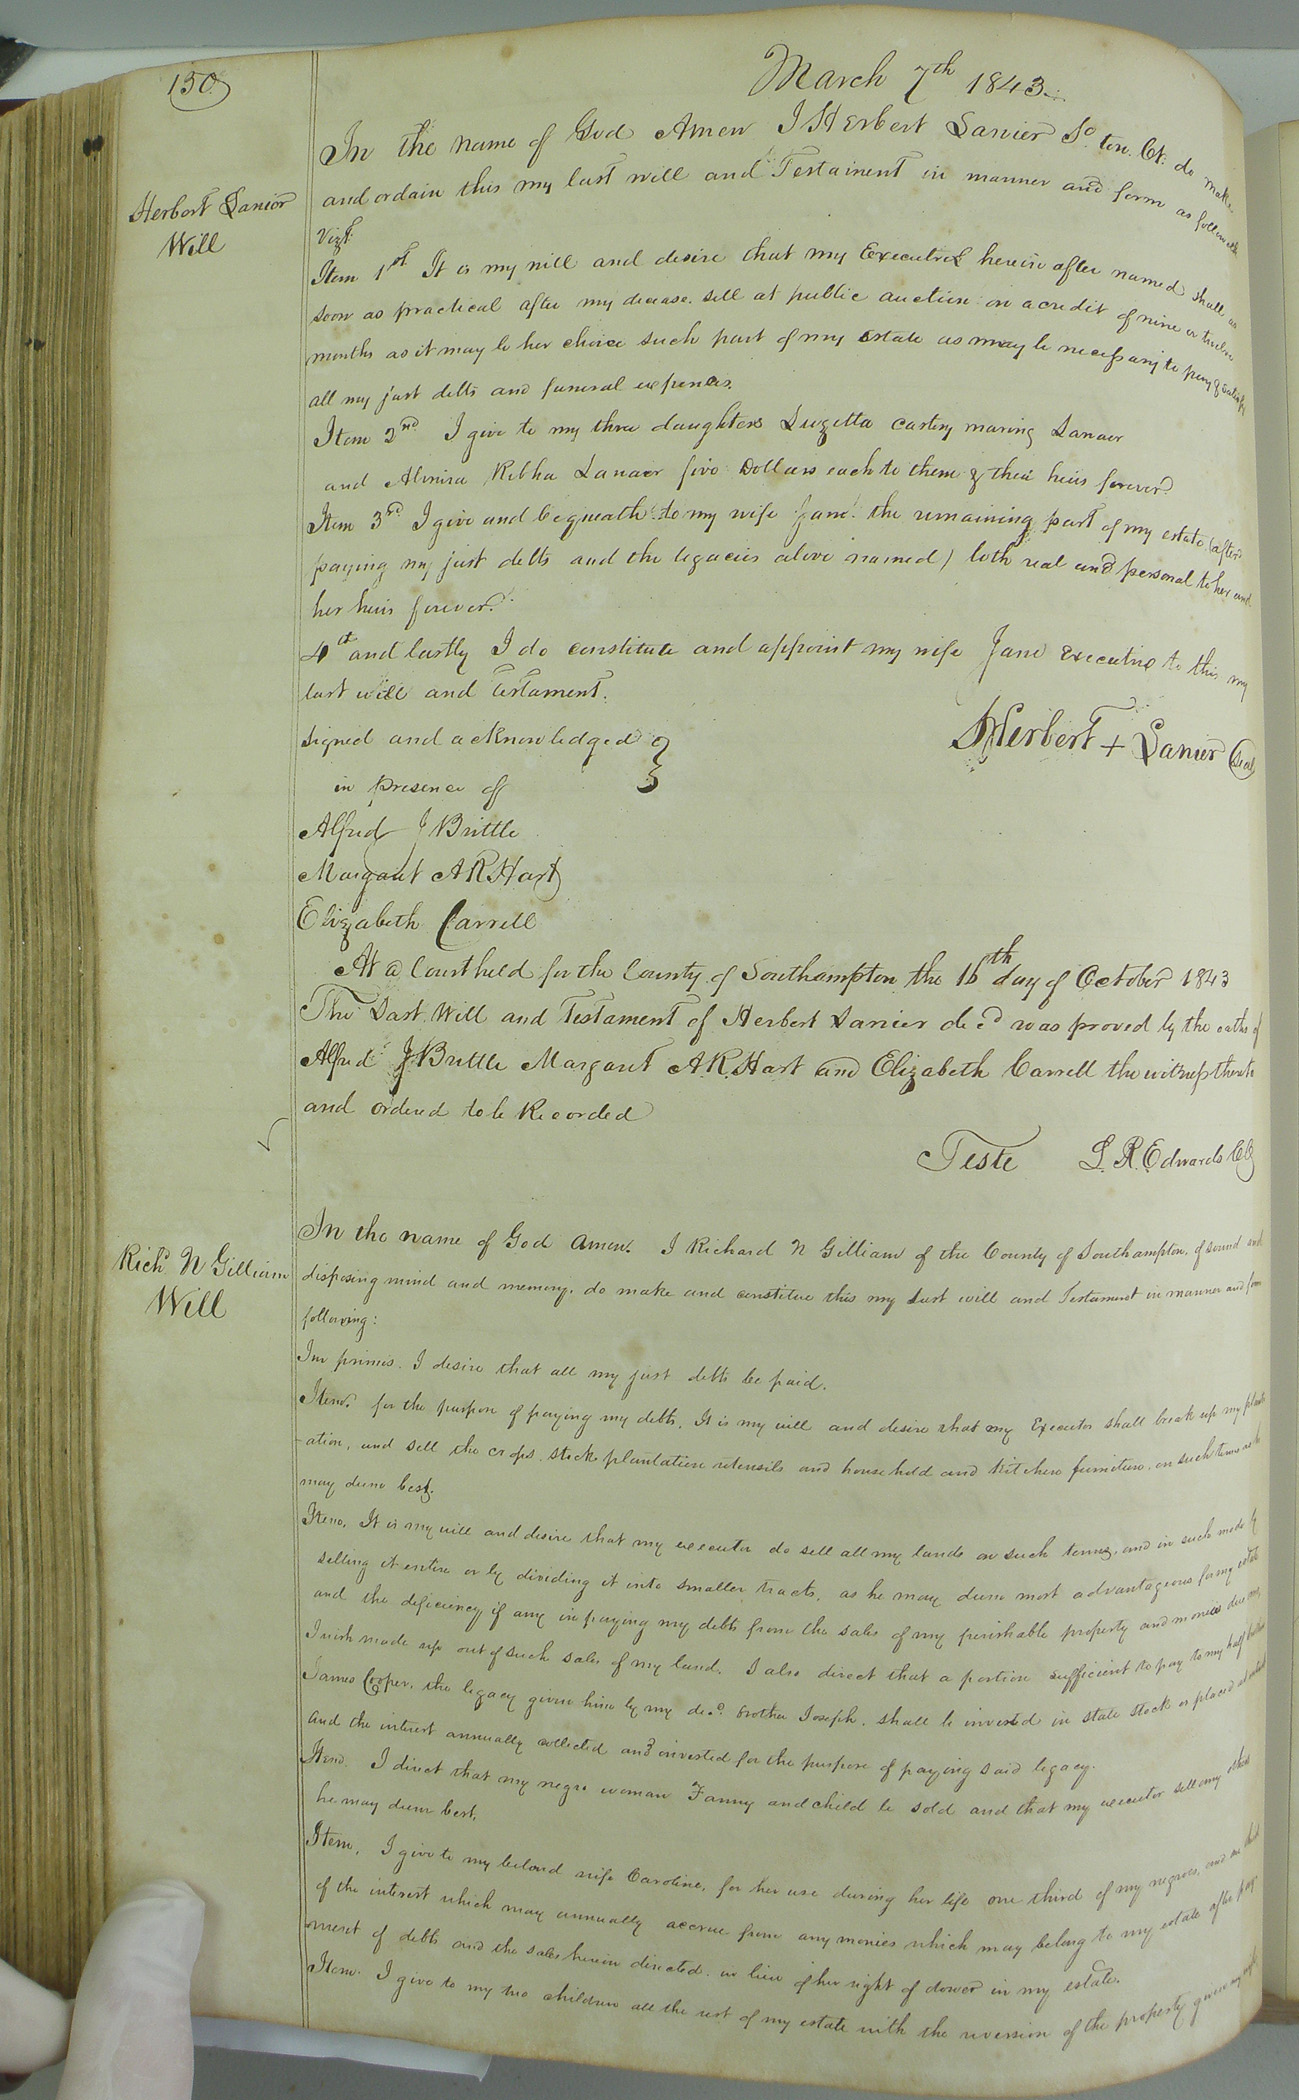 150
March 7th 1843
In the name of God Amen I Herbert Lanier So. ton. Ct. do make
Herbert Lanier
Will
and ordain this my last will and Testament in manner and form as followeth
Vizt
Item 1st It is my will and desire that my Executrix herein after named shall as
soon as practical after my decease. sell at public auction on a credit of nine or twelve
months as it may be her choice such part of my estate as may be necessary to pay & satisfy
all my just debts and funeral expenses.
Item 2nd I give to my three daughters Luzetta Lanier
and Almira Lanaer five Dollars each to them & their heirs forever
Item 3rd I give and bequeath to my wife Jane the remaining part of my estate (after
paying my just debts and the legacies above named) both real and personal to her and
her heirs forever.
4th and lastly I do constitute and appoint my wife Jane Executrix to this my
last will and testament.
Signed and acknowledged }
Herbert + Lanier Seal
in presence of
Alfred J Brittle
Margaret A R Hart
Elizabeth Carrell
At a Court held for the County of Southampton the 16th day of October 1843
The Last Will and Testament of Herbert Lanier decd was proved by the oaths of
Alfred J Brittle Margaret A. R. Hart and Elizabeth Carrell the witness thereto
and ordered to be Recorded
Teste L. R. Edwards Clk
In the name of God amen. I Richard N Gilliam of the County of Southampton, of sound and
Richd N Gilliam
Will
disposing mind and memory. do make and constitue this my last will and Testament in manner and form
following:
Im primis. I desire that all my just debts be paid.
Item. for the purpose of paying my debts, It is my will and desire that my Executor shall break up my plant
-ation, and sell the crops, stock plantation utensils and household and kitchen furniture, on such terms as he
may deem best.
Item. It is my will and desire that my executor do sell all my lands on such terms, and in such mode by
selling it entire or by dividing it into smaller tracts, as he may deem most advantageous for my estate
and the deficiency if any in paying my debts from the sales of my perishable property and monies due me,
I wish made up out of such sales of my land. I also direct that a portion sufficient to pay to my half brother
James Cooper, the legacy given him by my decd. brother Joseph. shall be invested in state stock or placed at interest
and the interest annually collected and invested for the purpose of paying said legacy.
Item. I direct that my negro woman Fanny and child be sold and that my executor sell any others
he may deem best.
Item. I give to my beloved wife Caroline, for her use during her life one third of my negroes, and one third
of the interest which may annually accrue from any monies which may belong to my estate after pay-
ment of debts and the sales herein directed. in lieu of her right of dower in my estate.
Item. I give to my two children all the rest of my estate with the reversion of the property given my wife